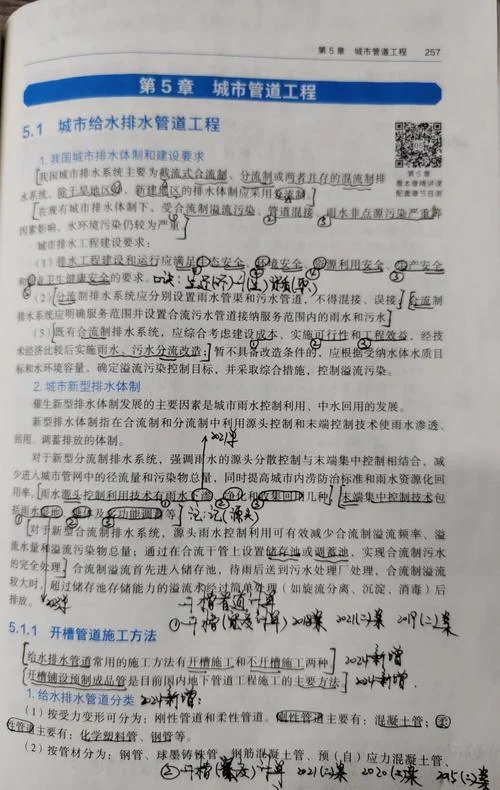 第5章 城市管道工程 257
第5章 城市管道工程
5.1 城市给水排水管道工程
第5章
看本章精讲课
配套章节自测
1. 我国城市排水体制和建设要求
我国城市排水系统主要为截流式合流制、分流制或两者并存的混流制排
水系统，除干旱地区外，新建地区的排水体制应采用分流制
在现有城市排水体制下，受合流制溢流污染、管道混接、雨水非点源污染严重等
因素影响，水环境污染仍较为严重
城市排水工程建设要求：
（1）排水工程建设和运行应满足生态安全、环境安全、资源利用安全、生产安全
和职业卫生健康安全的要求。
（2）分流制排水系统应分别设置雨水管渠和污水管道，不得混接、误接 合流制
排水系统应明确服务范围并设置合流污水管道接纳服务范围内的雨水和污水
（3）既有合流制排水系统，应综合考虑建设成本、实施可行性和工程效益，经技
术经济比较后实施雨水、污水分流改造；暂不具备改造条件的，应根据受纳水体水质目
标和水环境容量，确定溢流污染控制目标，并采取综合措施，控制溢流污染。
2. 城市新型排水体制
催生新型排水体制发展的主要因素是城市雨水控制利用、中水回用的发展。
新型排水体制指在合流制和分流制中利用源头控制和末端控制技术使雨水渗透、
回用、调蓄排放的体制。
2021案
对于新型分流制排水系统，强调雨水的源头分散控制与末端集中控制相结合，减
少进入城市管网中的径流量和污染物总量，同时提高城市内涝防治标准和雨水资源化回
用率。雨水源头控制利用技术有雨水下渗、净化和收集回用几种 末端集中控制技术包
括雨水湿地、塘体及多功能调蓄等
对于新型合流制排水系统，源头雨水控制利用可有效减少合流制溢流频率、溢
流水量和溢流污染物总量；通过在合流干管上设置储存池或调蓄池，实现合流制污水
的完全处理 合流制溢流首先进入储存池，待雨后送到污水处理厂处理，合流制溢流
较大时，超过储存池存储能力的溢流水经过简单处理（如旋流分离、沉淀、消毒）后
排放。
5.1.1 开槽管道施工方法
①一开槽(宽度)计算 2018案 2021(二)案 2019(二)案
给水排水管道常用的施工方法有开槽施工和不开槽施工两种 2024新增
开槽铺设预制成品管是目前国内地下管道工程施工的主要方法 2024新增
1. 给水排水管道分类 2024新增：
（1）按受力变形可分为：刚性管道和柔性管道。刚性管道主要有：混凝土管；柔
性管道主要有：化学塑料管、钢管等。
（2）按管材分为：钢管、球墨铸铁管、钢筋混凝土管、预（自）应力混凝土管、
2021(二)案 2020(二)案 2015(二)